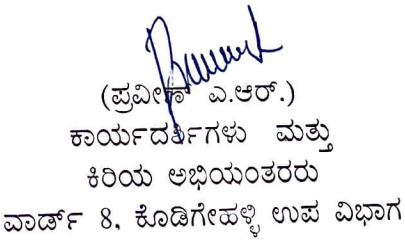 (ಪ್ರವೀಣ್ ಎ.ಆರ್.)
ಕಾರ್ಯದರ್ಶಿಗಳು ಮತ್ತು
ಕಿರಿಯ ಅಭಿಯಂತರರು
ವಾರ್ಡ್ 8, ಕೊಡಿಗೇಹಳ್ಳಿ ಉಪ ವಿಭಾಗ